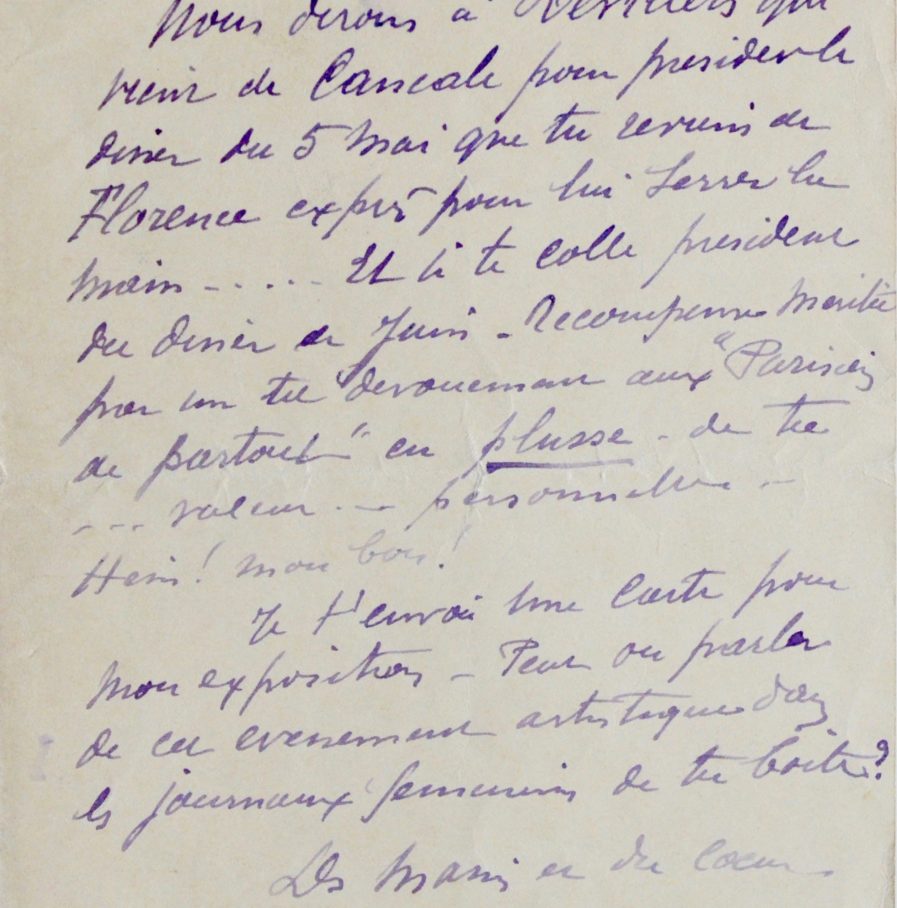 Nous dirons à qui
vient de Cancale pour presider le
diner du 5 Mai que tu reviens de
Florence exprès pour lui serrer la
main - . . . . . Et il te colle president
du diner de Juin - Recompense meritée
par un tel devouement aux "Parisiens
de partout" en plusse - de ta
- - - valeur . - personnelle -
Hein! mon bon!
Je t'envoie une carte pour
mon exposition - Peut on parler
de cet evenement artistique dans
les journaux feminins de ta boîte?
Des mains et du coeur.